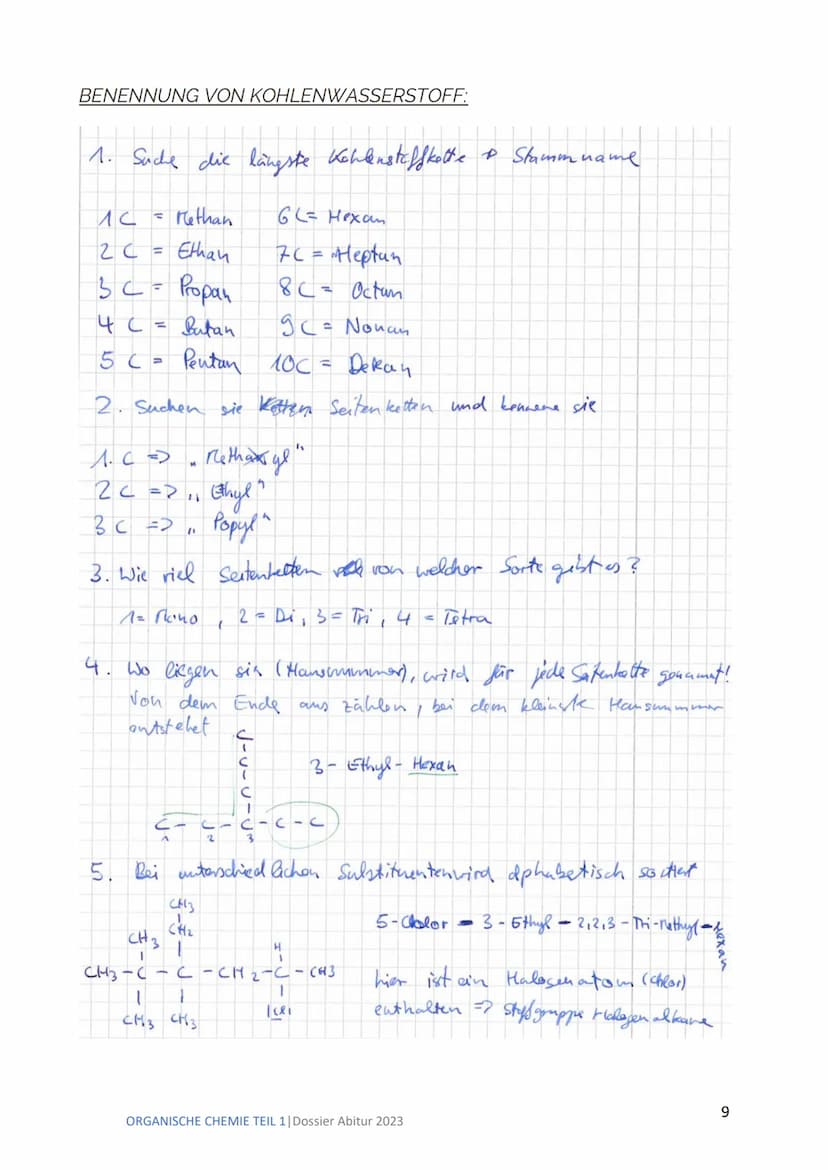 BENENNUNG VON KOHLENWASSERSTOFF:
1. Suche die längste Kohlenstoffkette → Stammname
1C = Methan 6C = Hexan
2C = Ethan 7C = Heptan
3C = Propan 8C = Octan
4C = Butan 9C = Nonan
5C = Pentan 10C = Dekan
2. Suchen sie Seitenketten und sie
1. C => „Methyl"
2C => „Ethyl"
3C => „Popyl"
3. Wie viel Seitenketten von welcher Sorte gibt es?
1 = Mono, 2 = Di, 3 = Tri, 4 = Tetra
4. Wo liegen sie (Hausnummer), wird für jede Seitenkette genannt!
Von dem Ende aus zählen, bei dem kleinste Hausnummer
entstehet
C
C
C
3-Ethyl-Hexan
C - C - C - C - C
1 2 3
5. Bei unterschiedlichen Substituenten wird alphabetisch sortiert
CH3
CH3 CH2
5-Chlor-3-Ethyl-2,2,3-Tri-Methyl-Hexan
H
CH3 - C - C - CH2 - C - CH3
hier ist ein Halogenatom (Chlor)
CH3 CH3 |Cl|
enthalten => Stoffgruppe Halogenalkane
ORGANISCHE CHEMIE TEIL 1|Dossier Abitur 2023
9